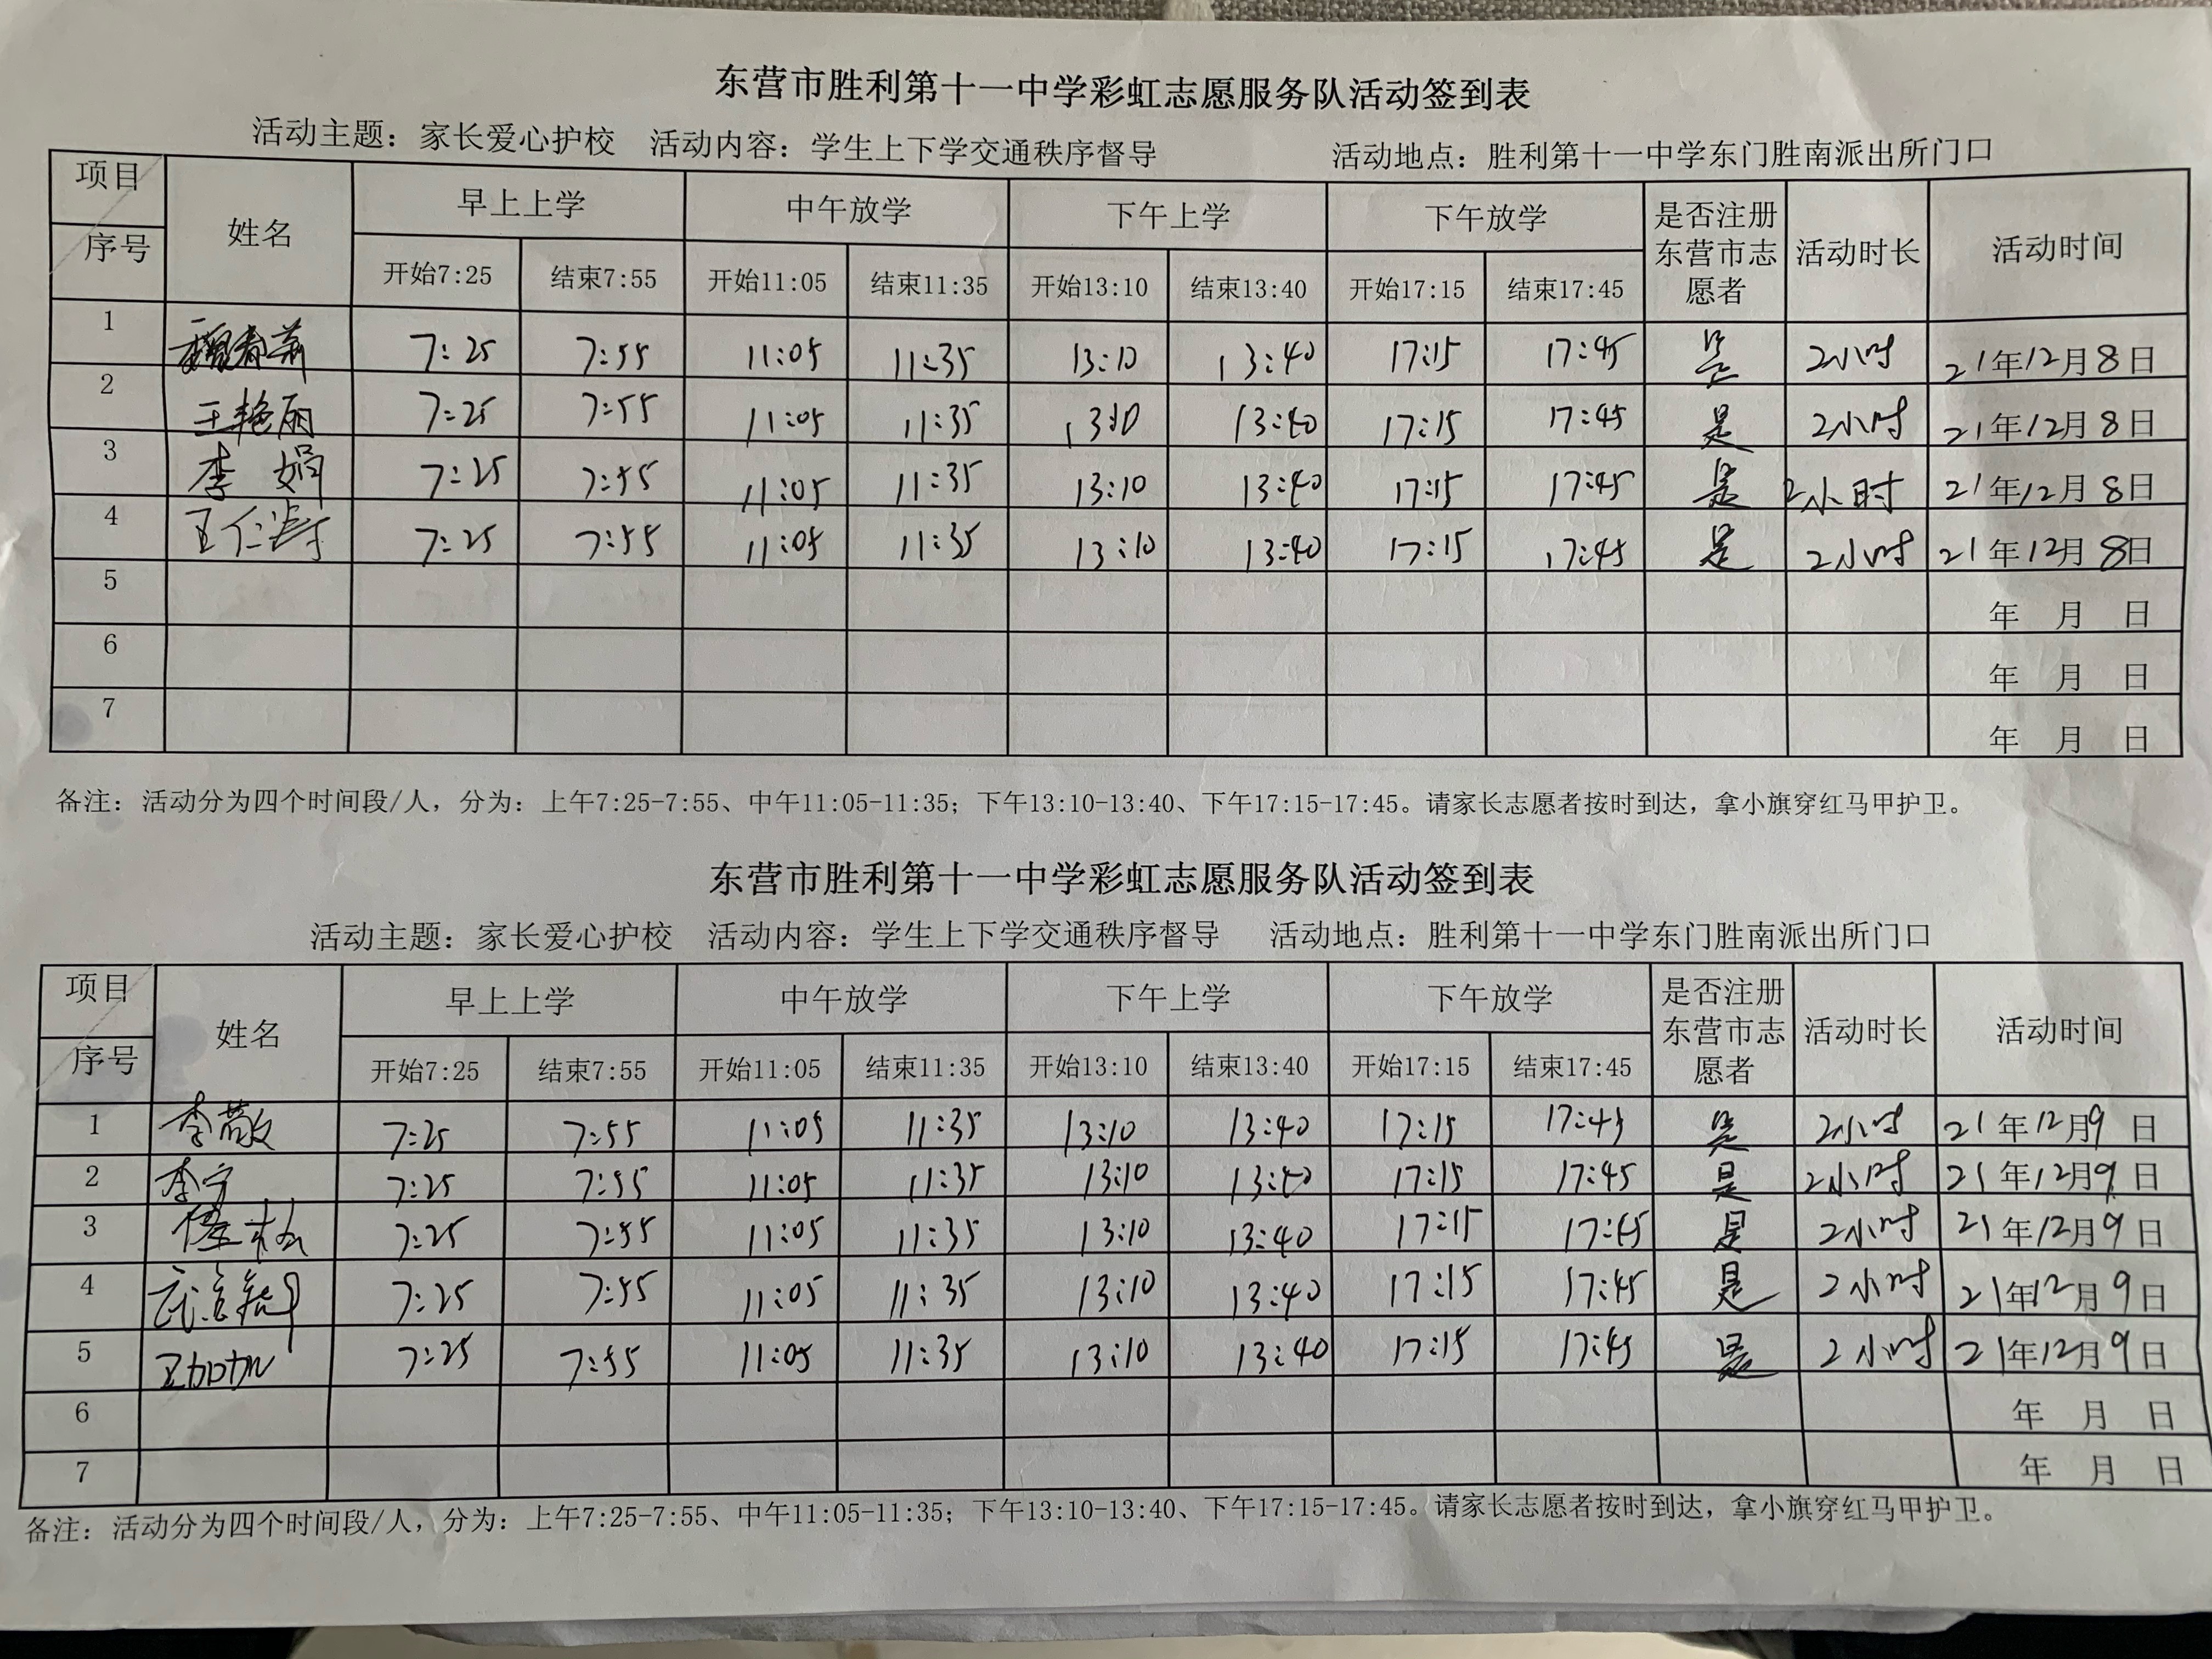 东营市胜利第十一中学彩虹志愿服务队活动签到表
活动主题：家长爱心护校 活动内容：学生上下学交通秩序督导 活动地点：胜利第十一中学东门胜南派出所门口
项目 序号 姓名 早上上学 中午放学 下午上学 下午放学 是否注册东营市志愿者 活动时长 活动时间
开始7:25 结束7:55 开始11:05 结束11:35 开始13:10 结束13:40 开始17:15 结束17:45
1 7:25 7:55 11:05 11:35 13:10 13:40 17:15 17:45 是 2小时 21年12月8日
2 王艳丽 7:25 7:55 11:05 11:35 13:10 13:40 17:15 17:45 是 2小时 21年12月8日
3 李娟 7:25 7:55 11:05 11:35 13:10 13:40 17:15 17:45 是 2小时 21年12月8日
4 王仁涛 7:25 7:55 11:05 11:35 13:10 13:40 17:15 17:45 是 2小时 21年12月8日
5 年 月 日
6 年 月 日
7 年 月 日
备注：活动分为四个时间段/人，分为：上午7:25-7:55、中午11:05-11:35；下午13:10-13:40、下午17:15-17:45。请家长志愿者按时到达，拿小旗穿红马甲护卫。
东营市胜利第十一中学彩虹志愿服务队活动签到表
活动主题：家长爱心护校 活动内容：学生上下学交通秩序督导 活动地点：胜利第十一中学东门胜南派出所门口
项目 序号 姓名 早上上学 中午放学 下午上学 下午放学 是否注册东营市志愿者 活动时长 活动时间
开始7:25 结束7:55 开始11:05 结束11:35 开始13:10 结束13:40 开始17:15 结束17:45
1 李敬 7:25 7:55 11:05 11:35 13:10 13:40 17:15 17:45 是 2小时 21年12月9日
2 李宁 7:25 7:55 11:05 11:35 13:10 13:40 17:15 17:45 是 2小时 21年12月9日
3 7:25 7:55 11:05 11:35 13:10 13:40 17:15 17:45 是 2小时 21年12月9日
4 7:25 7:55 11:05 11:35 13:10 13:40 17:15 17:45 是 2小时 21年12月9日
5 7:25 7:55 11:05 11:35 13:10 13:40 17:15 17:45 是 2小时 21年12月9日
6 年 月 日
7 年 月 日
备注：活动分为四个时间段/人，分为：上午7:25-7:55、中午11:05-11:35；下午13:10-13:40、下午17:15-17:45。请家长志愿者按时到达，拿小旗穿红马甲护卫。